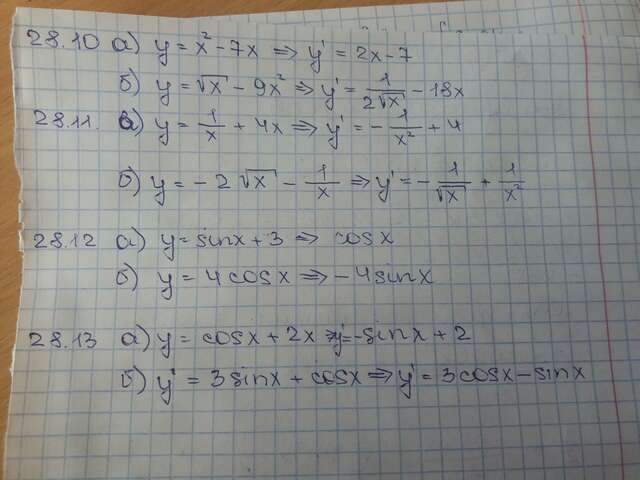 28.10 а) y = x² - 7x ⇒ y' = 2x - 7
б) y = √x - 9x² ⇒ y' = 1/(2√x) - 18x
28.11. а) y = 1/x + 4x ⇒ y' = - 1/x² + 4
б) y = - 2√x - 1/x ⇒ y' = - 1/√x + 1/x²
28.12 а) y = sinx + 3 ⇒ cosx
б) y = 4cosx ⇒ -4sinx
28.13 а) y = cosx + 2x ⇒ y' = -sinx + 2
б) y' = 3sinx + cosx ⇒ y' = 3cosx - sinx